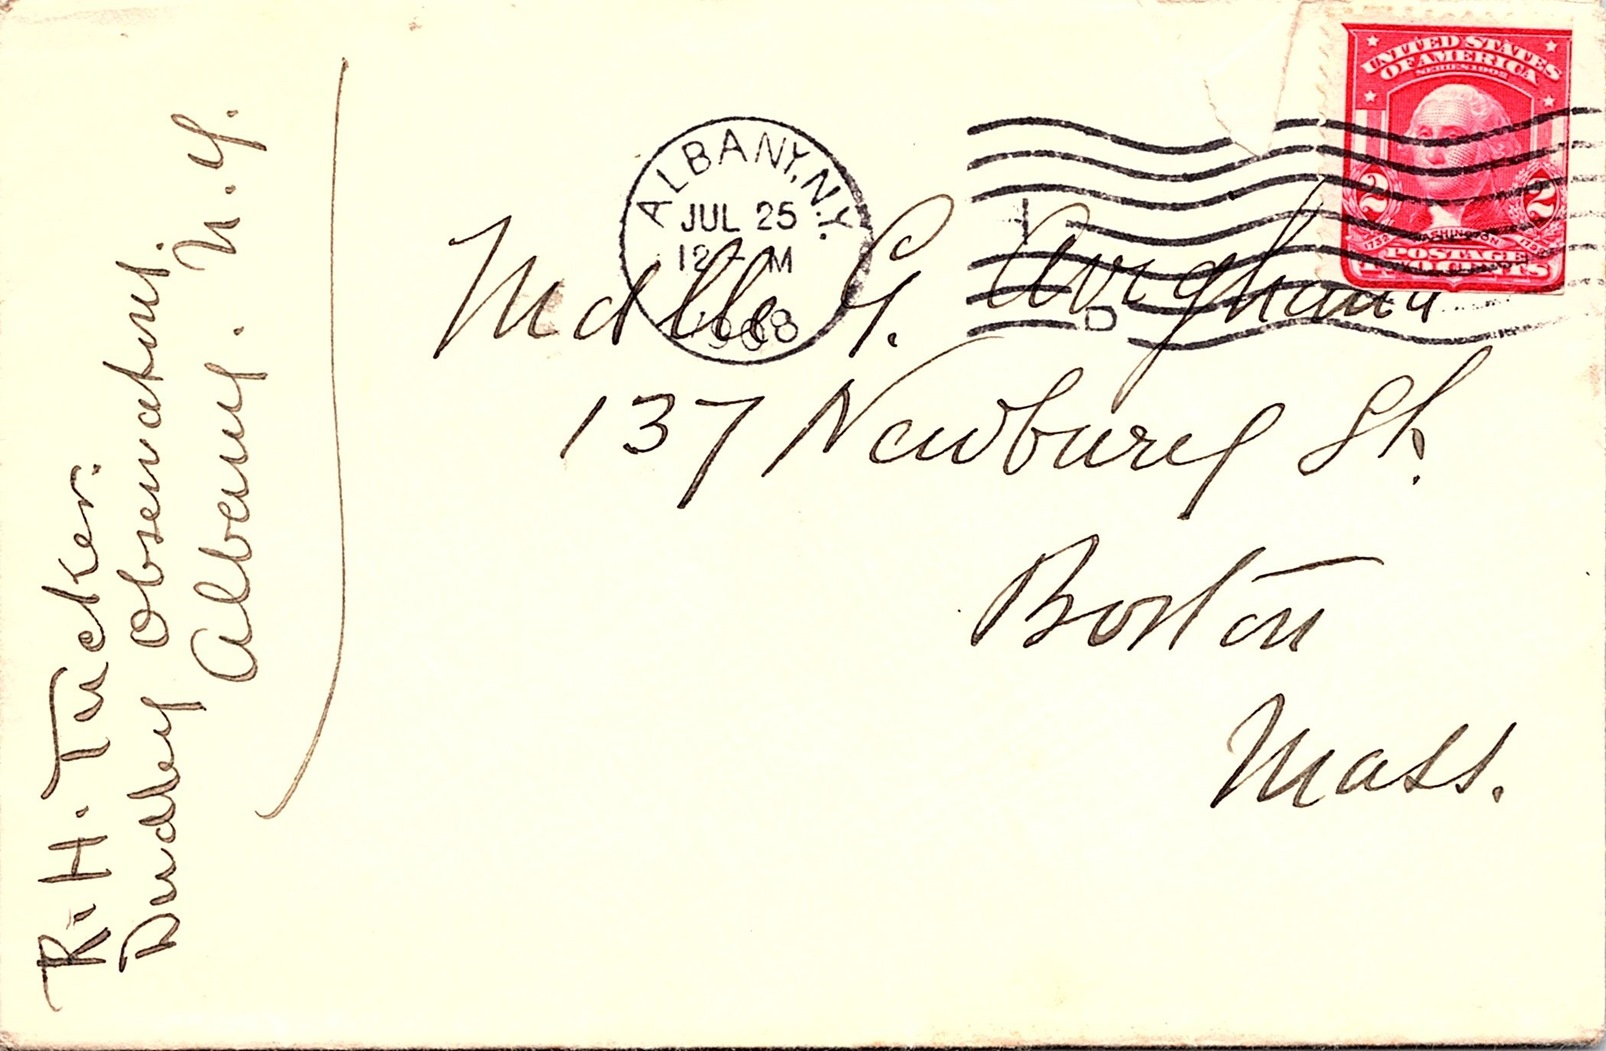 R. H. Tucker.
Dudley Observatory.
Albany. N. Y.
ALBANY, N.Y.
JUL 25
12 M
1908
UNITED STATES
OF AMERICA
SERIES 1902
2 2
1732 WASHINGTON 1799
POSTAGE
TWO CENTS
D
Mdlle G.
137 Newbury St.
Boston
Mass.